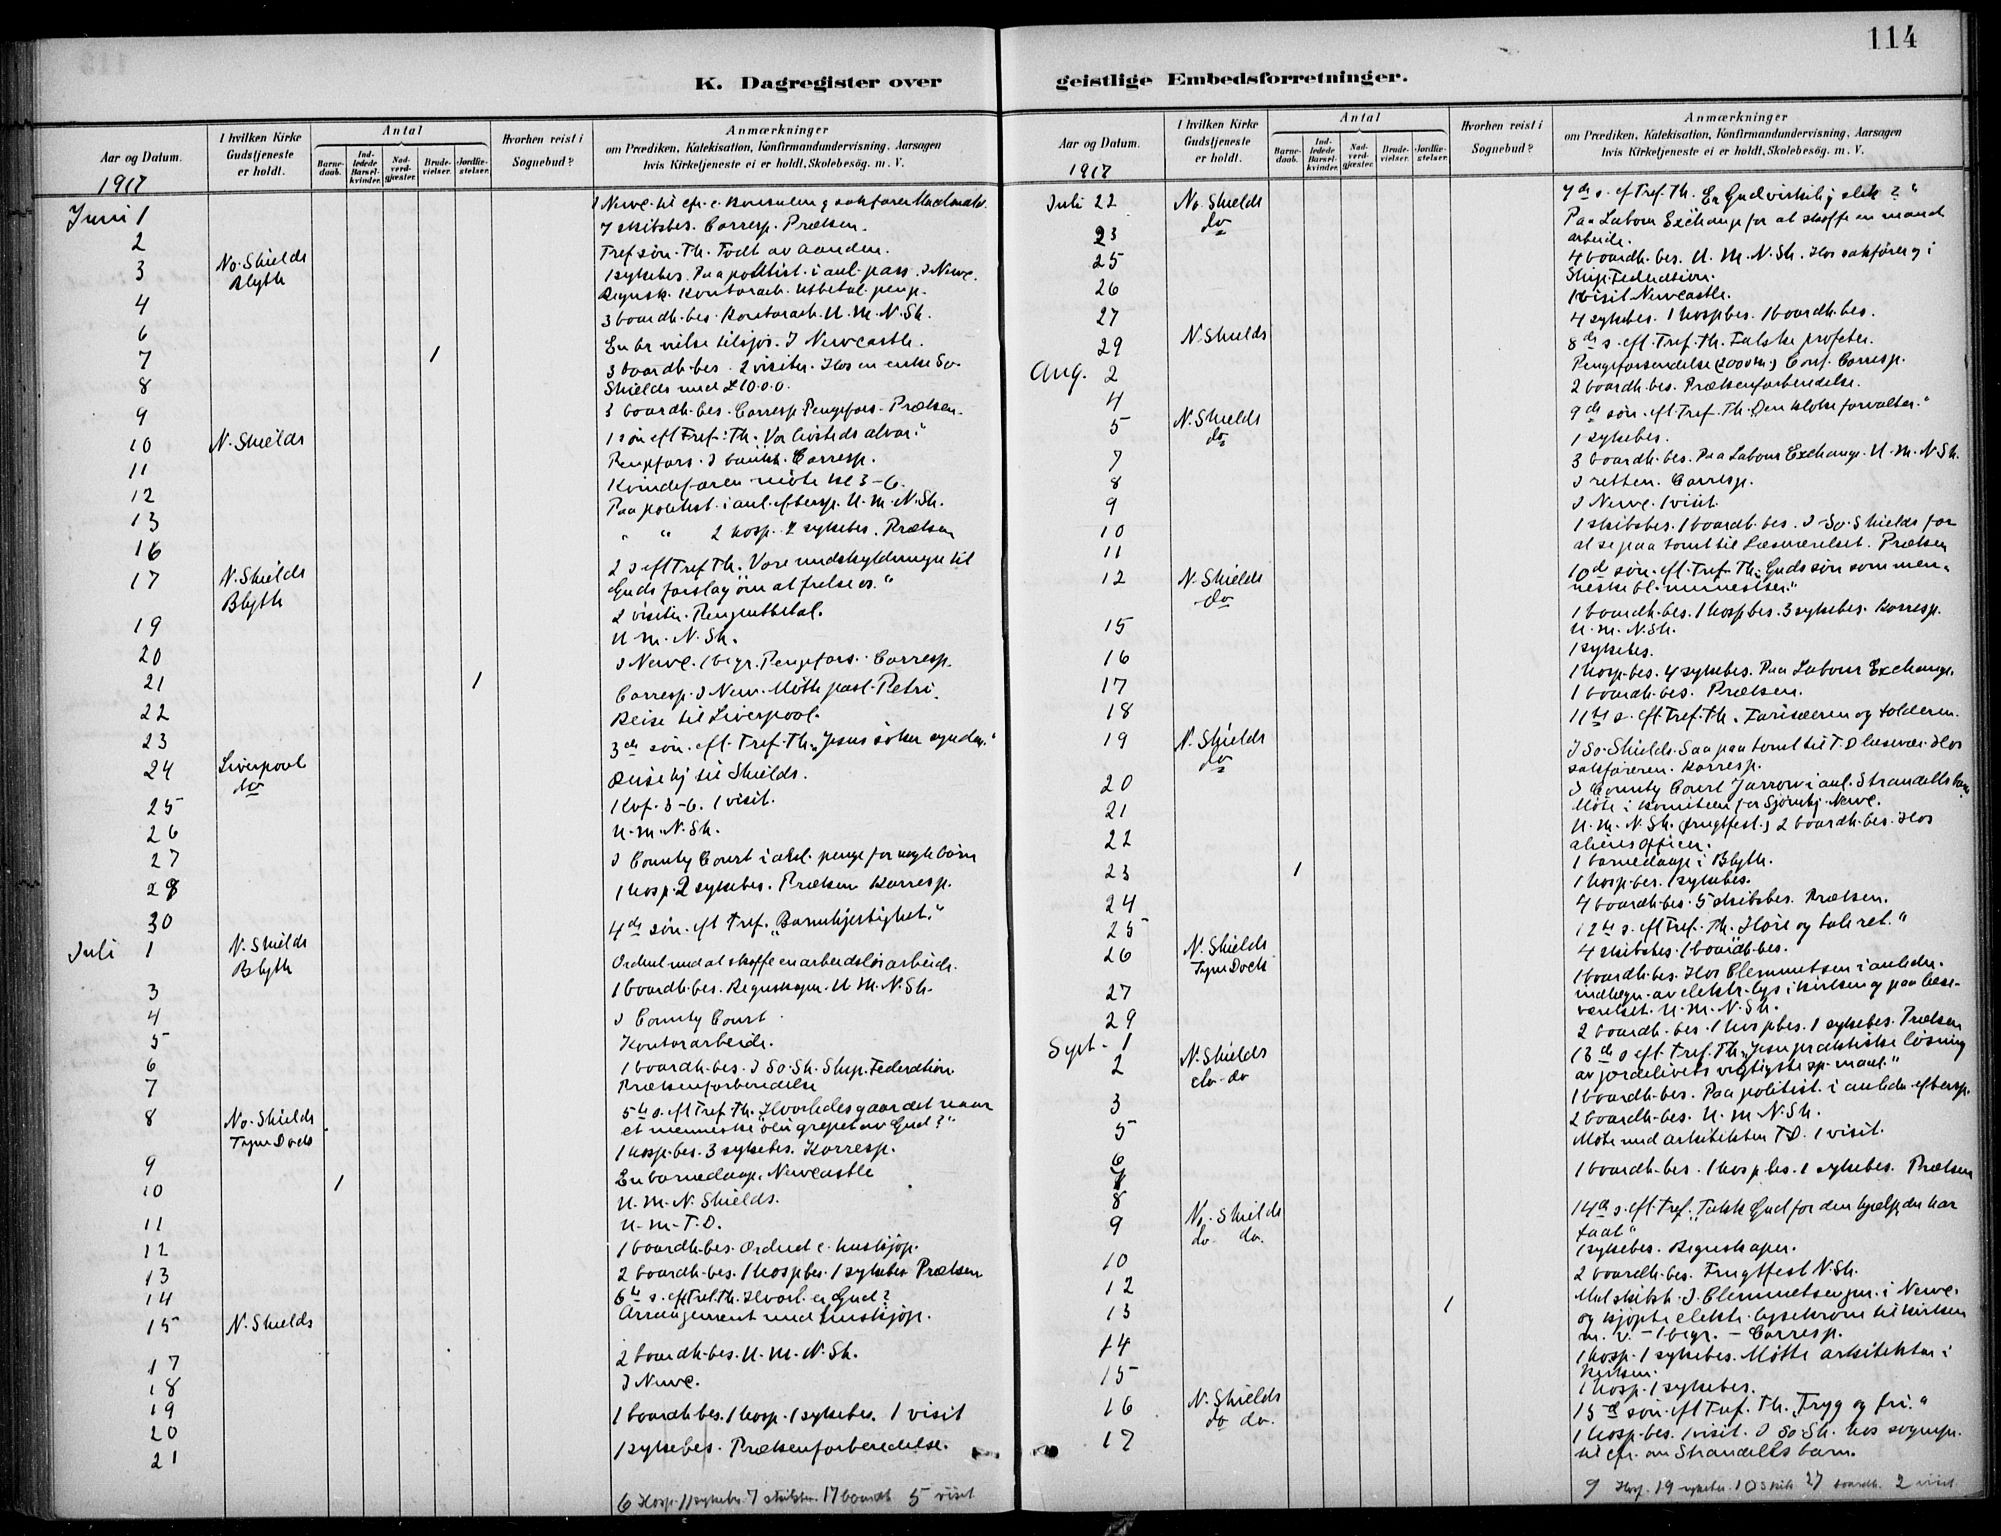 114
K. Dagregister over
geistlige Embedsforretninger.
Aar og Datum.
I hvilken Kirke Gudstjeneste er holdt.
Antal
Barnedaab.
Indledede Barselkvinder.
Nadverdgjæster.
Brudevielser.
Jordfæstelser.
Hvorhen reist i Sognebud?
Anmærkninger
om Prædiken, Katekisation, Konfirmandundervisning, Aarsagen
hvis Kirketjeneste ei er holdt, Skolebesög. m. V.
1917
Juni 1
7 skibsbes. Corresp. Præken.
2
Tref. søn. Th. Født av Aanden.
3 No. Shields
Blyth
1 sykebes. Paa politist. i anl. pass. I Newc.
Regnsk. Kontorarb. Utbetal. peng.
4
3 boardh. bes. Kontorarb. U. M. N. Sh.
6
En br. vielse tilsjøs. I Newcastle.
7 1
3 boardh. bes. 2 visiter. Hos en enke So.
Shields med £10.0.0.
8
3 boardh. bes. Corresp. Pengefors. Præken.
9
1 søn eft Tref: Th. Vor livsteds alvor."
10 N. Shields
Pengefors. I bank. Corresp.
11
Kvindeforen. møte kl 3-6.
12
Paa politist. i anl. eftersp. U. M. N. Sh.
13
" " 2 hosp. 2 sykebes. Præken
16
2 s. eft Tref Th. Vore undskyldninger til
17 N. Shields
Blyth
Guds forslag om at frelse os."
2 visiter. Pengeutbetal.
19
U. M. N. Sh.
20
I Newc. 1 begr. Pengefors. Corresp.
21 1
Corresp. I New. Møtte past. Petri.
22
Reise til Liverpool.
23
3de søn. eft. Tref. Th. "Jesus søker syndere."
24 Liverpool
do
Reise hj. til Shields.
25
1 Kvf. 3-6. 1 visit.
26
U. M. N. Sh.
27
I County Court
28
1 hosp. 2 sykebes. Præken Korresp.
30
4de søn. eft Tref. "Barmhjertighet."
Juli 1 N. Shields
Blyth
Ordnet med at skaffe en arbeidsløs arbeide.
3
1 boardh. bes. Regnskaper. U. M. N. Sh.
4
I County Court.
5
Kontorarbeide.
6
1 boardh. bes. I So. Sh. Ship. Federation
7
Prækenforberedelse
8 No. Shields
Tyne Dock
5te s. eft Tref. Th. Hvorledes gaar det naar
et menneske blir grepet av Gud?"
1 hosp. bes. 3 sykebes. Korresp.
9
En barnedaap. Newcastle
10 1
U. M. N. Shields.
11
U. M. T. D.
12
1 boardh. bes. Ordnet c. huskjøp.
13
2 boardh. bes. 1 hosp bes. 1 sykebes Præken
14
6te s. eft Tref. Th. Hvorl. er Gud?
15 N. Shields
Arrangement med huskjøp.
17
2 boardh. bes. U. M. N. Sh.
18
I Newc.
19
1 boardh. bes. 1 hosp. 1 sykebes. 1 visit
20
21
1 sykebes. Prækenforberedelse.
6 Hosp. 11 sykebes. 7 skibsbes. 17 boardh. 5 visit
Aar og Datum.
I hvilken Kirke Gudstjeneste er holdt.
Antal
Barnedaab.
Indledede Barselkvinder.
Nadverdgjæster.
Brudevielser.
Jordfæstelser.
Hvorhen reist i Sognebud?
Anmærkninger
om Prædiken, Katekisation, Konfirmandundervisning, Aarsagen
hvis Kirketjeneste ei er holdt, Skolebesög. m. V.
1917
Juli 22 No. Shields
do
7de s. eft Tref. Th. Er Gud virkelig slik?"
23
Paa Labour Exchange for at skaffe en mand
arbeide.
25
4 boardh. bes. U. M. N. Sh. Hos sakfører og i
Ship. Federation.
26
1 visit Newcastle.
27
4 sykebes. 1 hosp bes. 1 boardh. bes.
29 N. Shields
8de s. eft. Tref. Th. Falske profeter.
Aug. 2
Pengeforsendelse Corresp.
4
2 boardh. bes. Prækenforberedelse.
5 N. Shields
do
9de søn. eft. Tref. Th. Den kloke forvalter."
1 sykebes.
7
3 boardh. bes. Paa Labour Exchange. U. M. N. Sh.
8
I retten. Corresp.
9
I Newc. 1 visit.
10
1 skibsbes. 1 boardh. bes. I So. Shields for
11
at se paa tomt til Læseværelset. Præken
12 N. Shields
do
10de søn. eft. Tref. Th. "Guds søn som men-
neske bl. mennesker."
1 boardh. bes. 1 hosp bes. 3 sykebes. Korresp.
15
U. M. N. Sh.
16
1 sykebes.
17
1 hosp. bes. 4 sykebes. Paa Labour Exchange.
18
1 boardh. bes. Præken.
19 N. Shields
do
11te s. eft. Tref. Th. Farisæeren og tolderen.
I So. Shields. Saa paa tomt til T. D. læsevær. Hos
sakføreren. Korresp.
20
I County Court Jarrow i anl. Strandells barn
21
Møte i komiteen for Sjømhj. Newc.
22
U. M. N. Sh. (frugtfest.) 2 boardh. bes. Hos
aliens officer.
23 1
1 barnedaap i Blyth.
1 hosp. bes. 1 sykebes.
24
4 boardh. bes. 5 skibsbes. Præken.
25
12te s. eft Tref. Th. Høre og tale ret."
26 N. Shields
Tyne Dock
4 skibsbes. 1 boardh. bes.
1 boardh. bes. Hos Clemmetsen i anledn.
27
indlægn. av elektr. lys i kirken og paa læse-
værelset. U. M. N. Sh.
29
2 boardh. bes. 1 hosp bes. 1 sykebes. Præken
Sept. 1
13de s. eft. Tref. Th. "Jesu praktiske løsning
2 N. Shields
do do
av jordelivets vigtigste spørsmaal."
3
1 boardh. bes. Paa politist. i anledn. eftersp.
5
2 boardh. bes. U. M. N. Sh.
6
Møte med arkitekten T. D. 1 visit.
7
8
1 boardh. bes. 1 hosp bes. 1 sykebes. Præken
9 No. Shields
do do.
14de s. eft. Tref. "Takk Gud for den hjælp, du har
faat"
1 sykebes. Regnskaper.
10
2 boardh. bes. Frugtfest N. Sh.
12
13 1
og kjøpte elektr. lysekrone til kirken
m. v. - 1 begr. - Corresp.
14
1 hosp. 1 sykebes. Møtte arkitekten i
kirken.
15
1 hosp. 1 sykebes.
16 N. Shields
do do.
15de søn. eft Tref. Th. "Tryg og fri."
17
1 hosp. bes. 1 visit. I So. Sh. hos sognepr.
til efr. om Strandells barn.
9 Hosp. 19 sykebes. 10 skib 27 boardh. 2 visit